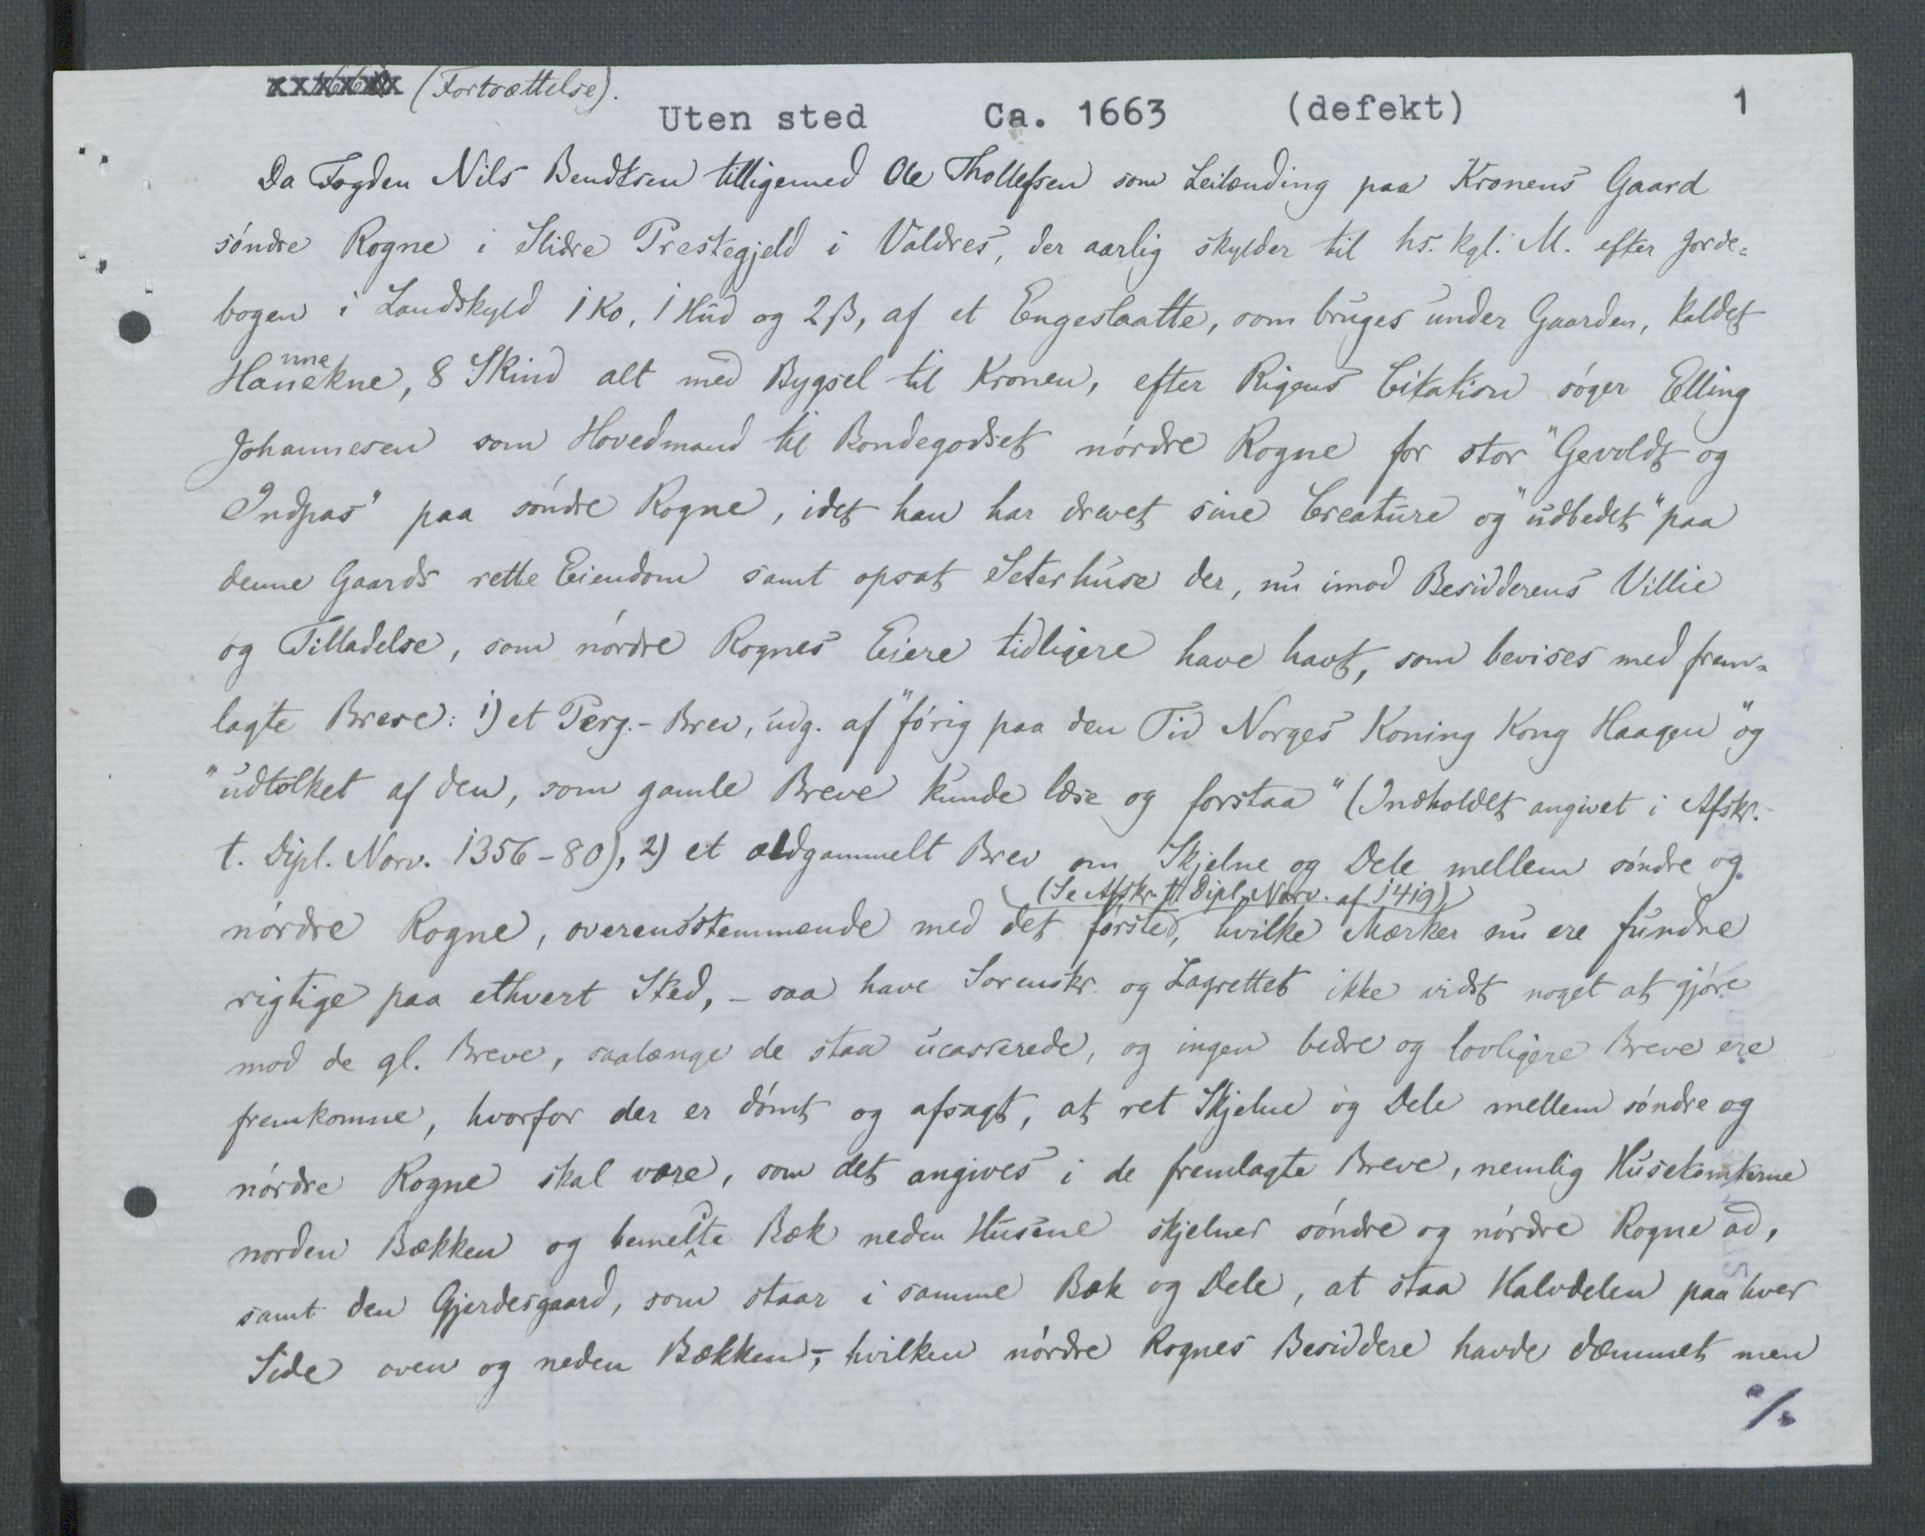 (Fortsættelse).
Uten sted Ca. 1663 (defekt) 1
Da Fogden Nils Bendtsen tilligemed Ole Thollefsen som Leilænding paa Kronens Gaard
søndre Rogne i Slidre Prestegjeld i Valdres, der aarlig skylder til hs. kgl. M. efter Jorde-
bogen i Landskyld 1 Ko, 1 Hud og 2 ß, af et Engeslaatte, som bruges under Gaarden, kaldet
Hannekne, 8 Skind alt med Bygsel til Kronen, efter Rigens Citation søger Elling
Johannesen som Hovedmand til Bondegodset nórdre Rogne for stor "Gevoldt og
Indpas" paa søndre Rogne, idet han har drevet sine Creature og "udbedet" paa
denne Gaards rette Eiendom samt opsat Seterhuse der, nu imod Besidderens Villie
og Tilladelse, som nórdre Rognes Eiere tidligere have havt, som bevises med frem-
lagte Breve: 1) et Perg.-Brev, udg. af "fórig paa den Tid Norges Koning Kong Haagen" og
"udtolket af den, som gamle Breve kunde læse og forstaa" (Indholdet angivet i Afskr.
t. Dipl. Norv. 1356-80), 2) et ældgammelt Brev om Skjelne og Dele mellem søndre og
(Se Afskr. til Dipl. Norv. af 1419)
nórdre Rogne, overensstemmende med det første, hvilke Mærker nu ere fundne
rigtige paa ethvert Sted, - saa have Sorenskr. og Lagrettet ikke vidst noget at gjøre
mod de gl. Breve, saalænge de staa ucasserede, og ingen bedre og lovligere Breve ere
fremkomne, hvorfor der er dømt og afsagt, at ret Skjelne og Dele mellem søndre og
nórdre Rogne skal være, som det angives i de fremlagte Breve, nemlig Husetomterne
norden Bækken og bemeldte Bæk neden Husene skjelner søndre og nórdre Rogne ad,
samt den Gjerdesgaard, som staar i samme Bæk og Dele, at staa Halvdelen paa hver
Side oven og neden Bækken, - hvilken nórdre Rognes Besiddere havde dæmmet men